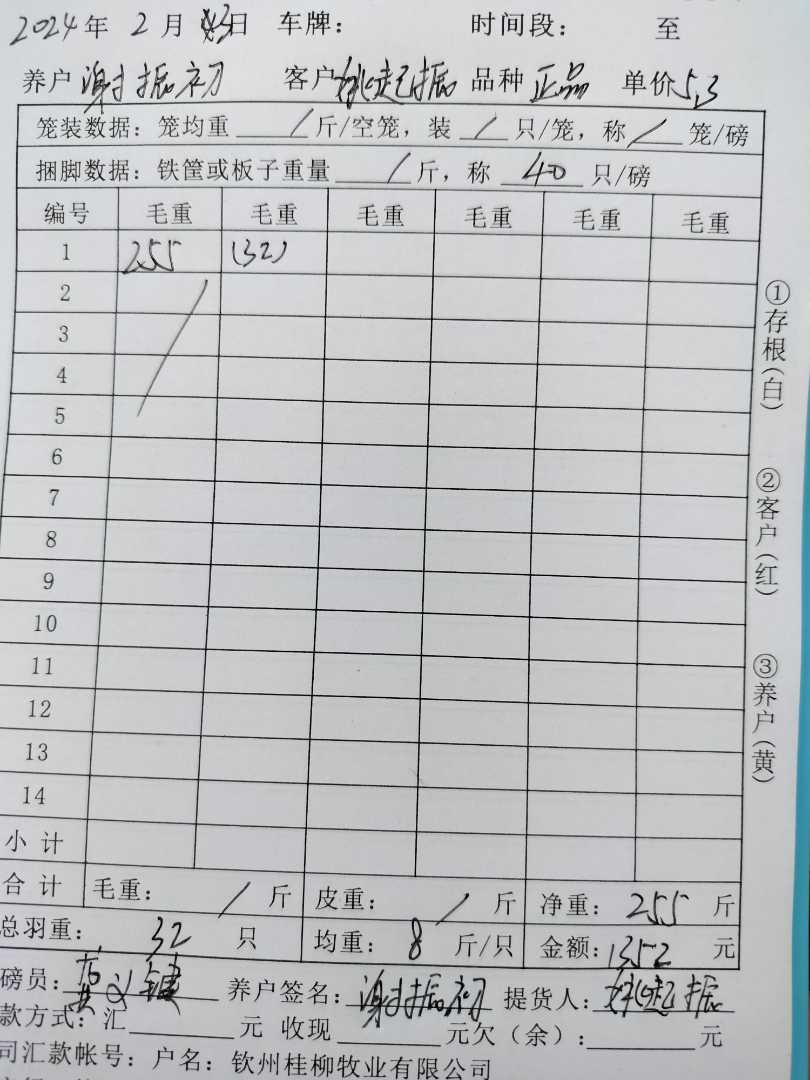 2024年 2 月 3日 车牌： 时间段： 至
养户 谢振初 客户 姚起振 品种 正品 单价 5.3
笼装数据：笼均重 / 斤/空笼，装 / 只/笼，称 / 笼/磅
捆脚数据：铁筐或板子重量 / 斤，称 40 只/磅
编号 毛重 毛重 毛重 毛重 毛重 毛重
1 255 (32)
2
3
4
5
6
7
8
9
10
11
12
13
14
小 计
合 计 毛重： / 斤 皮重： / 斤 净重： 255 斤
总羽重： 32 只 均重： 8 斤/只 金额：1352 元
磅员： 养户签名：谢振初 提货人：姚起振
款方式：汇 元 收现 元欠（余）： 元
司汇款帐号：户名：钦州桂柳牧业有限公司
①存根（白）
②客户（红）
③养户（黄）